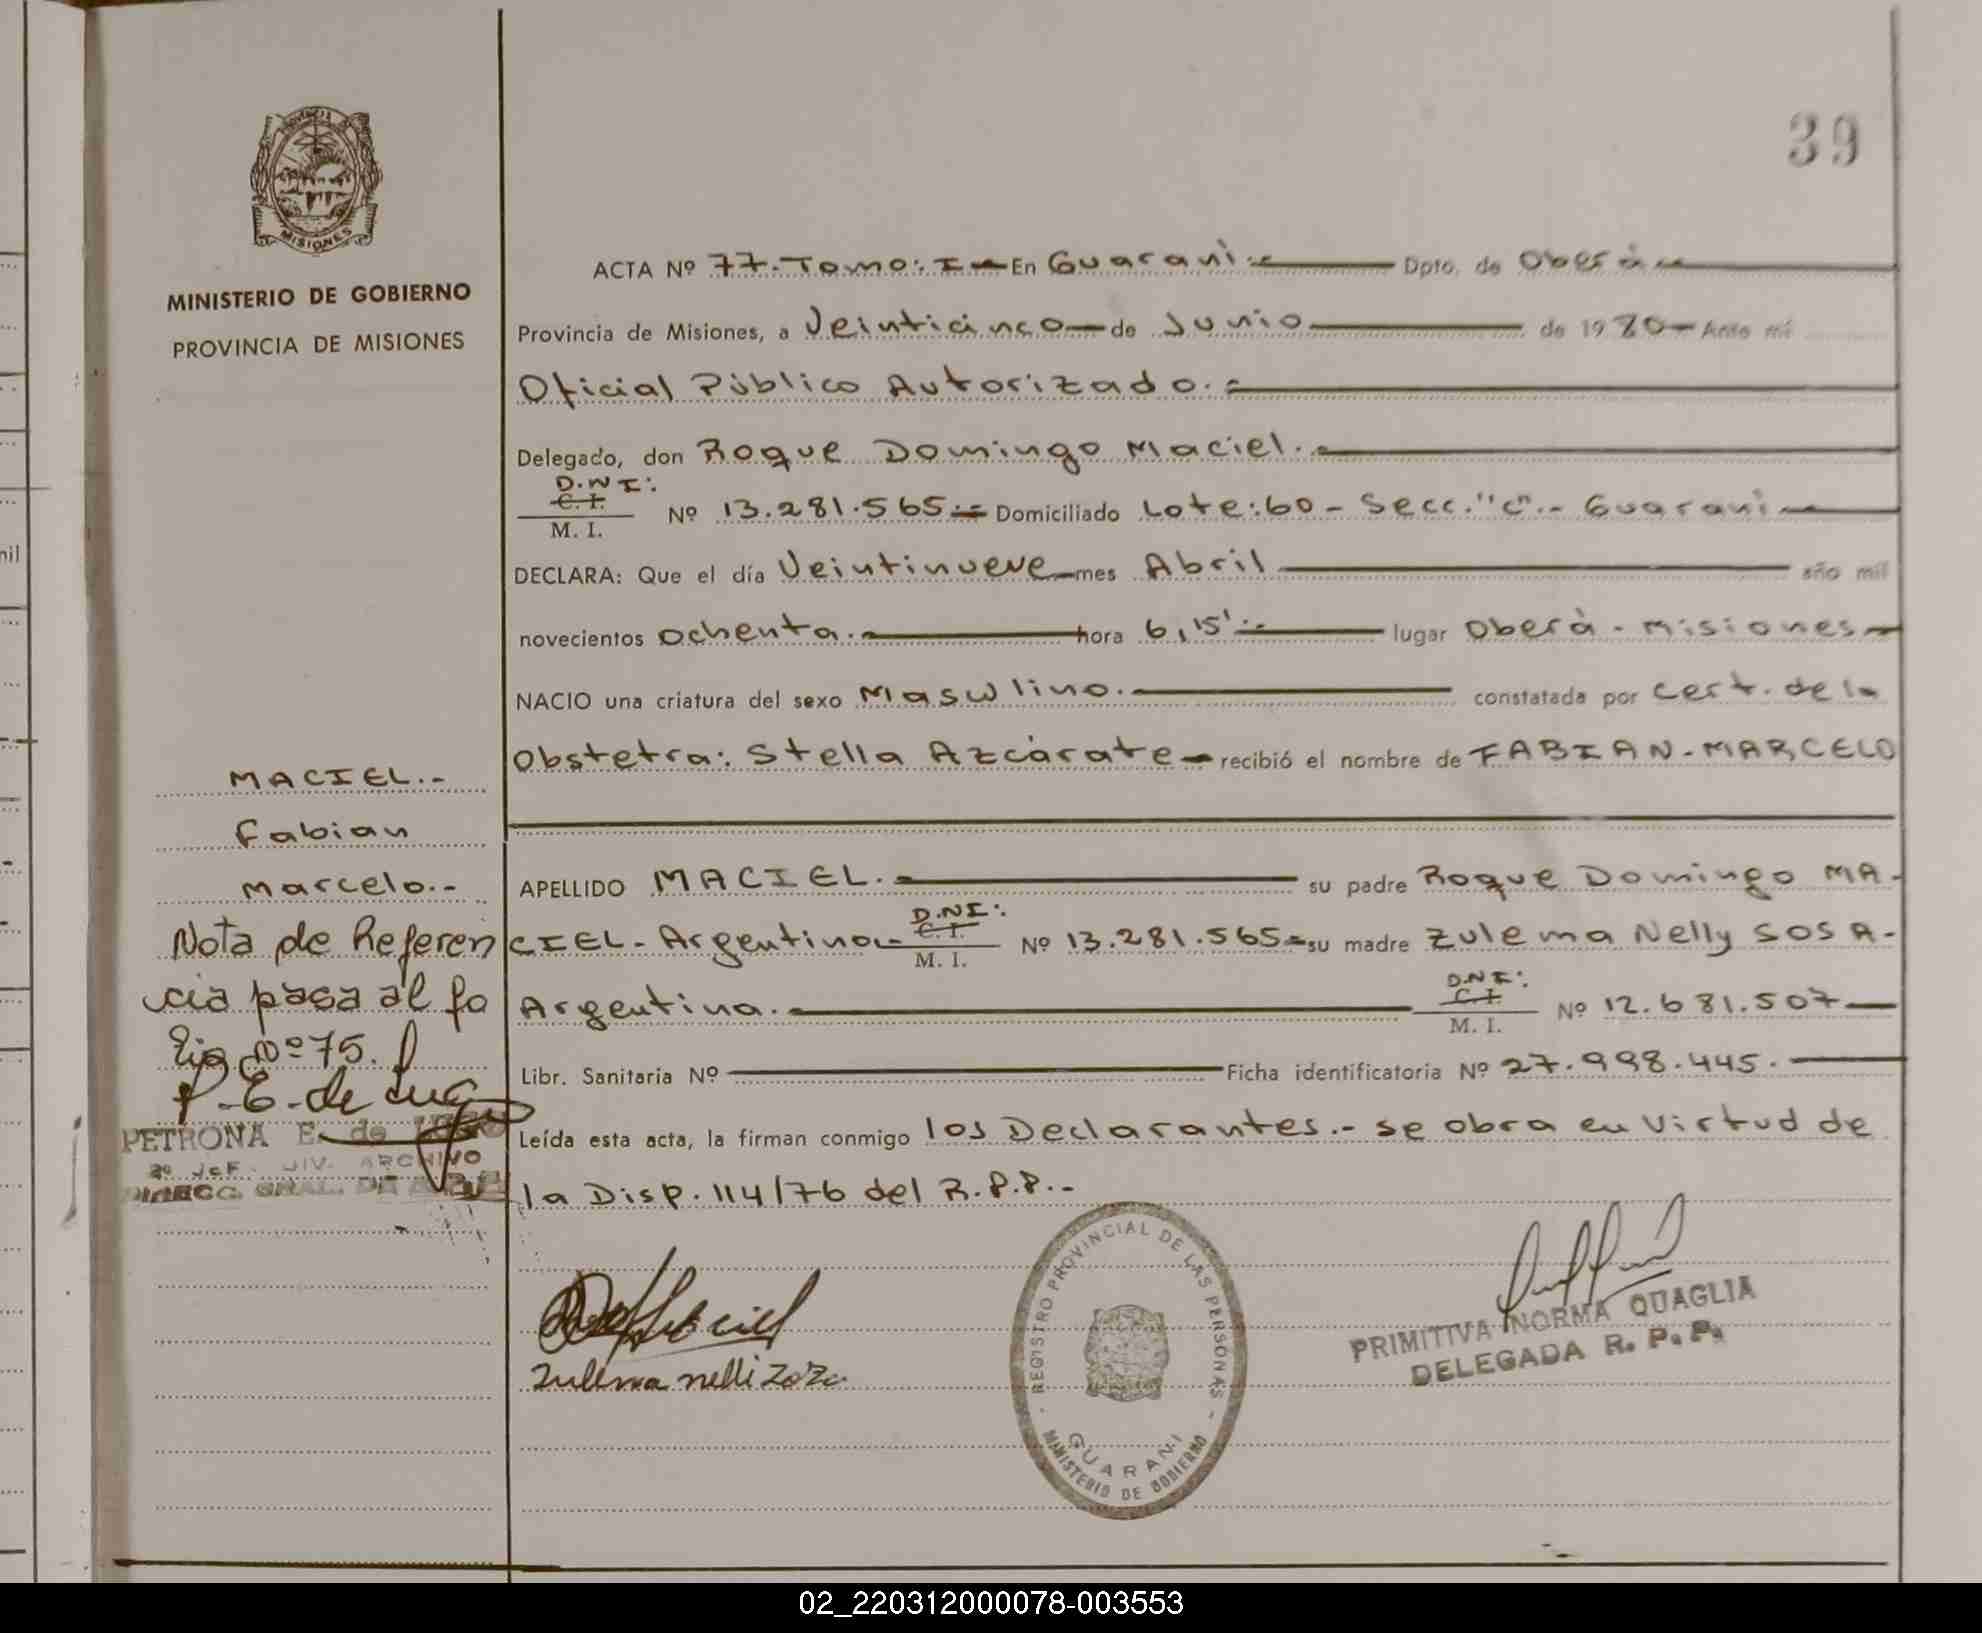 39
PROVINCIA DE
MISIONES
MINISTERIO DE GOBIERNO
PROVINCIA DE MISIONES
ACTA Nº 77.-Tomo: I- En Guaraní.- Dpto. de Oberá.-
Provincia de Misiones, a Veinticinco- de Junio de 1980- Ante mí
Oficial Público Autorizado.-
Delegado, don Roque Domingo Maciel.-
D.N.I:
C. I.
M. I. Nº 13.281.565.- Domiciliado Lote:60- Secc."C".- Guaraní-
DECLARA: Que el día Veintinueve- mes Abril año mil
novecientos ochenta.- hora 6,15'.- lugar Oberá - Misiones-
NACIO una criatura del sexo Masculino.- constatada por cert. de la
Obstetra: Stella Azcárate- recibió el nombre de FABIAN-MARCELO
MACIEL.-
Fabian
Marcelo.-
APELLIDO MACIEL.- su padre Roque Domingo MA-
D.N.I:
CIEL- Argentino.- C. I.
M. I. Nº 13.281.565- su madre Zulema Nelly SOSA-
D.N.I:
Argentina.- C. I.
M. I. Nº 12.681.507-
Libr. Sanitaria Nº Ficha identificatoria Nº 27.998.445.-
Leída esta acta, la firman conmigo los Declarantes.- se obra en Virtud de
la Disp. 114/76 del R.P.P.-
Nota de Referen
cia pasa al fo
lio Nº 75.
P.E. de Lugo
PETRONA E. de LUGO
2º JEF. DIV. ARCHIVO
DIRECC. GRAL. DE
Maciel
Zulema nelli Zoza
REGISTRO PROVINCIAL DE LAS PERSONAS
GUARANI
MINISTERIO DE GOBIERNO
PRIMITIVA NORMA QUAGLIA
DELEGADA R. P. P.
nil
02_220312000078-003553